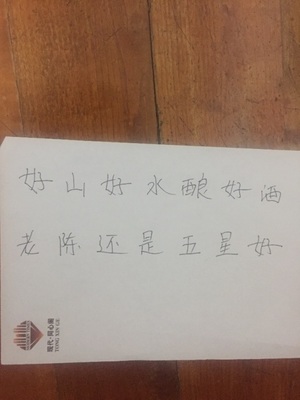 好山好水酿好酒
老陈还是五星好
现代·同心阁
TONG XIN GE